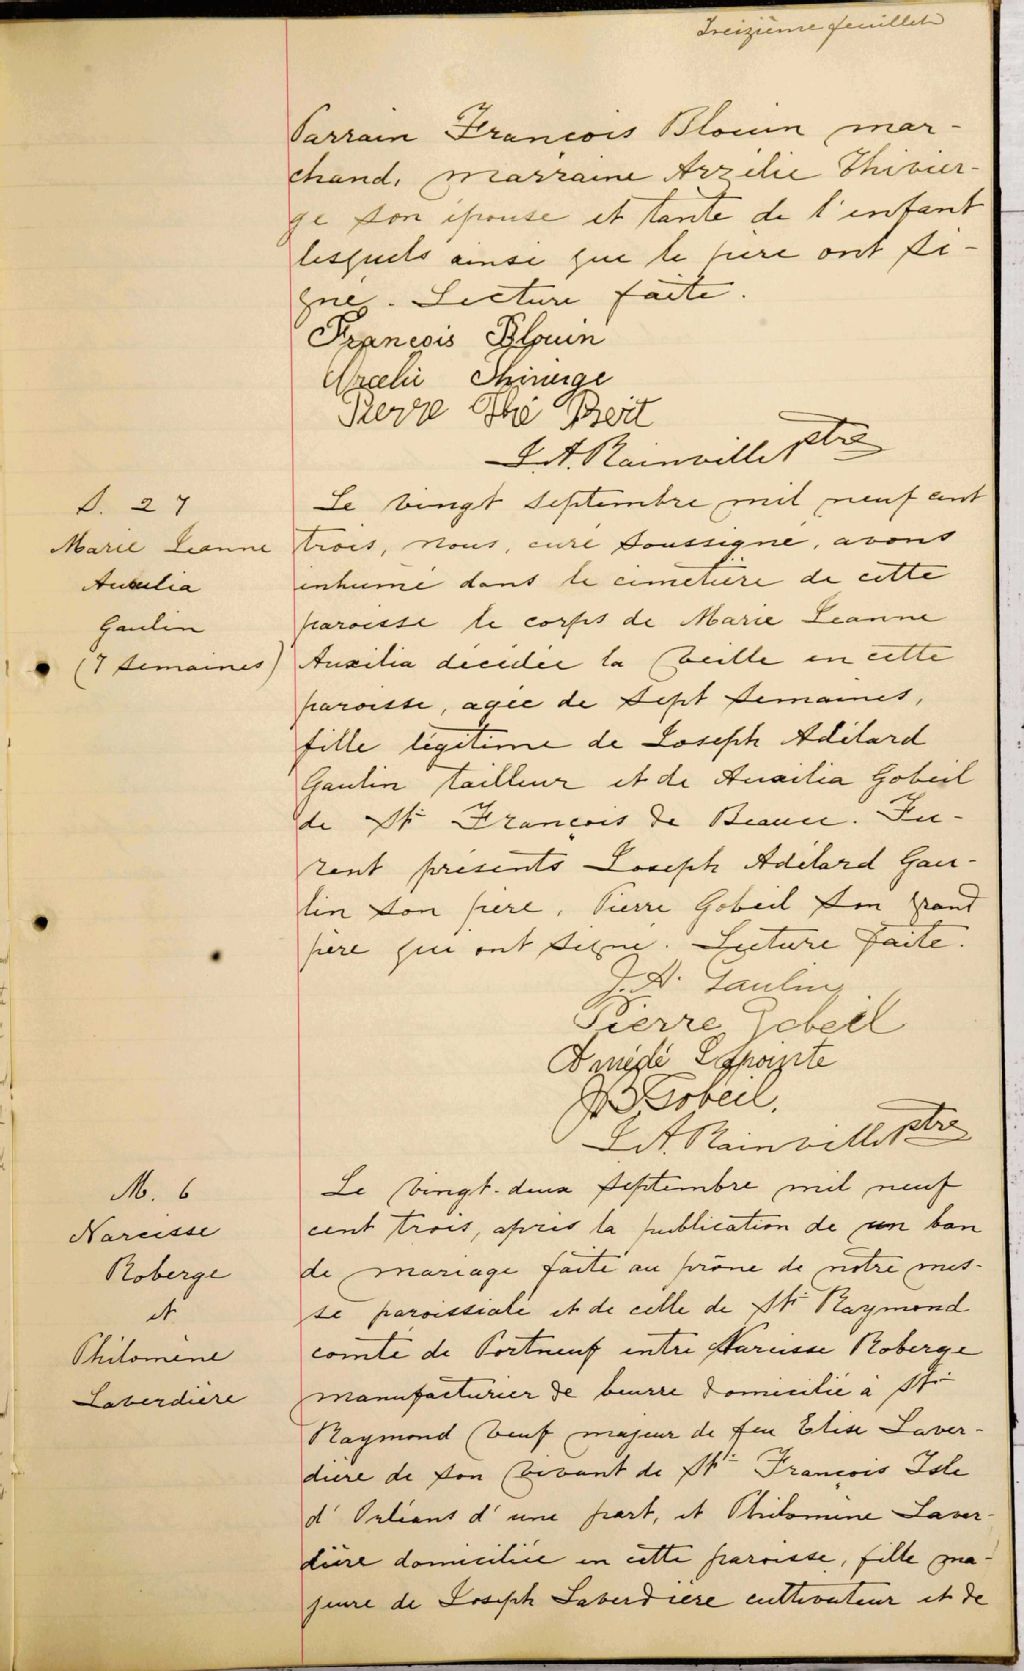 Treizième feuillet
Parrain François Blouin mar-
chand, marraine Arzélie Thivier-
ge son épouse et tante de l'enfant
lesquels ainsi que le père ont si-
gné. Lecture faite.
François Blouin
Thivierge
Pierre
J. A. Rainville Ptre
S. 27
Marie Jeanne
Auxilia
Gaulin
(7 semaines)
Le vingt septembre mil neuf cent
trois, nous, curé soussigné, avons
inhumé dans le cimetière de cette
paroisse le corps de Marie Jeanne
Auxilia décédée la veille en cette
paroisse, agée de sept semaines,
fille légitime de Joseph Adélard
Gaulin tailleur et de Auxilia Gobeil
de St François de Beauce. Fu-
rent présents Joseph Adélard Gau-
lin son père, Pierre Gobeil son grand
père qui ont signé. Lecture faite.
J. A. Gaulin
Pierre Gobeil
Amédé Lapointe
J B Gobeil.
J. A. Rainville Ptre
M. 6
Narcisse
Roberge
et
Philomène
Laverdière
Le vingt-deux septembre mil neuf
cent trois, après la publication de un ban
de mariage faite au prône de notre mes-
se paroissiale et de celle de St Raymond
comté de Portneuf entre Narcisse Roberge
manufacturier de beurre domicilié à St
Raymond veuf majeur de feu Elise Laver-
dière de son vivant de St François Isle
d'Orléans d'une part, et Philomène Laver-
dière domiciliée en cette paroisse, fille ma-
jeure de Joseph Laverdière cultivateur et de